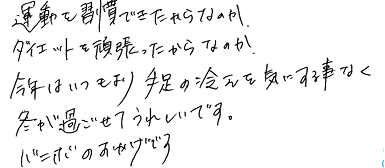 運動を習慣できたからなのか、
ダイエットを頑張ったからなのか、
今年はいつもより手足の冷えを気にする事なく
冬が過ごせてうれしいです。
バニボのおかげです